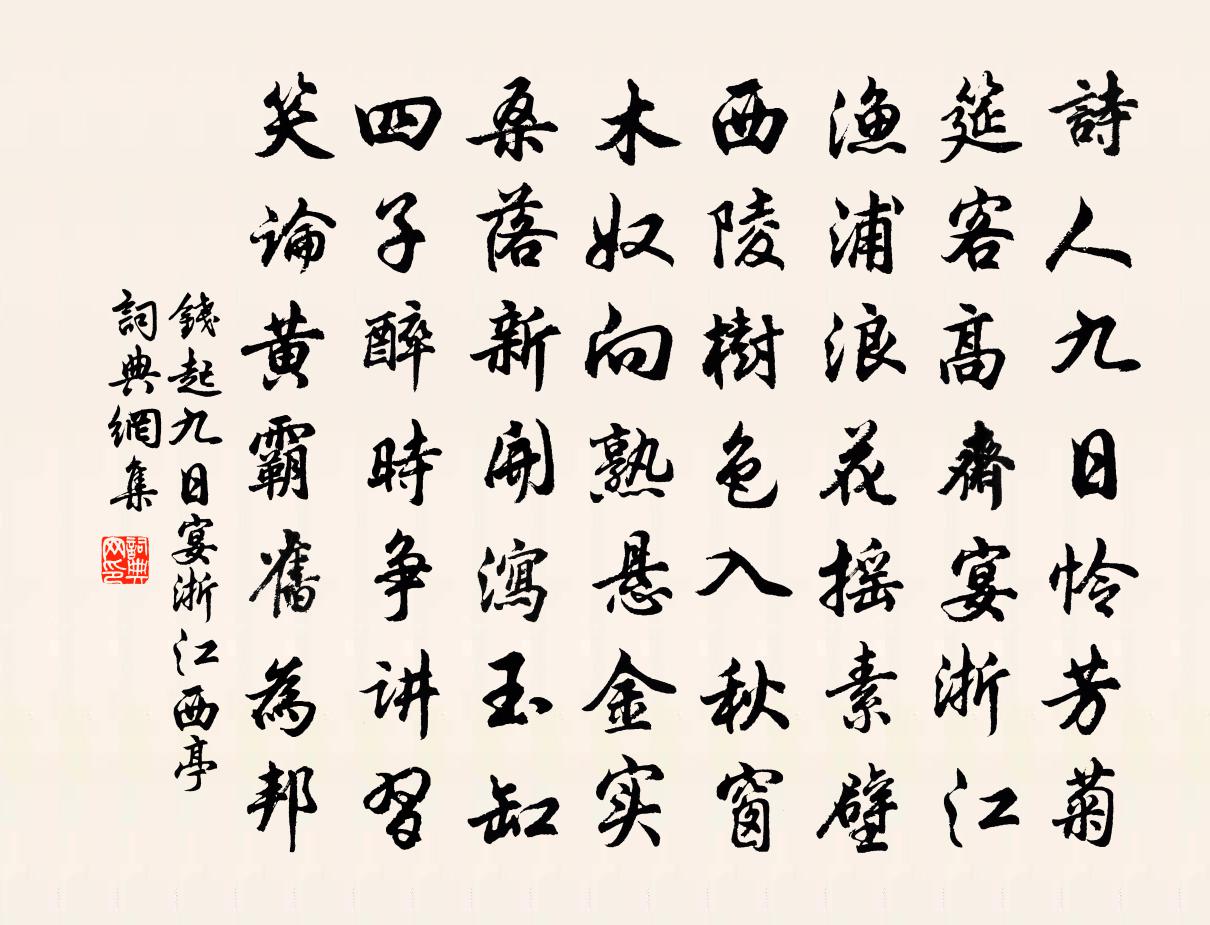 詩人九日怜芳菊
筵客高齋宴浙江
漁浦浪花摇素壁
西陵樹色入秋窗
木奴向熟悬金实
桑落新開瀉玉缸
四子醉時争讲習
笑论黄霸舊為邦
錢起九日宴浙江西亭
詞典網集
詞典网印